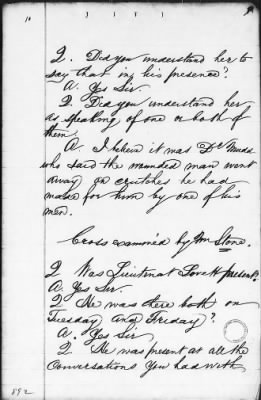 10
Q. Did you understand her to
say that in his presence?
A. Yes Sir.
Q Did you understand her
as speaking of one or both of
them
A. I believe it was Dr Mudd
who said the wounded man went
away on crutches he had
made for him by one of his
men.
Cross examined by Mr Stone.
Q Was Lieutenant Lovett present?
A. Yes Sir.
Q He was there both on
Tuesday and Friday?
A. Yes Sir
Q He was present at all the
Conversations you had with
892